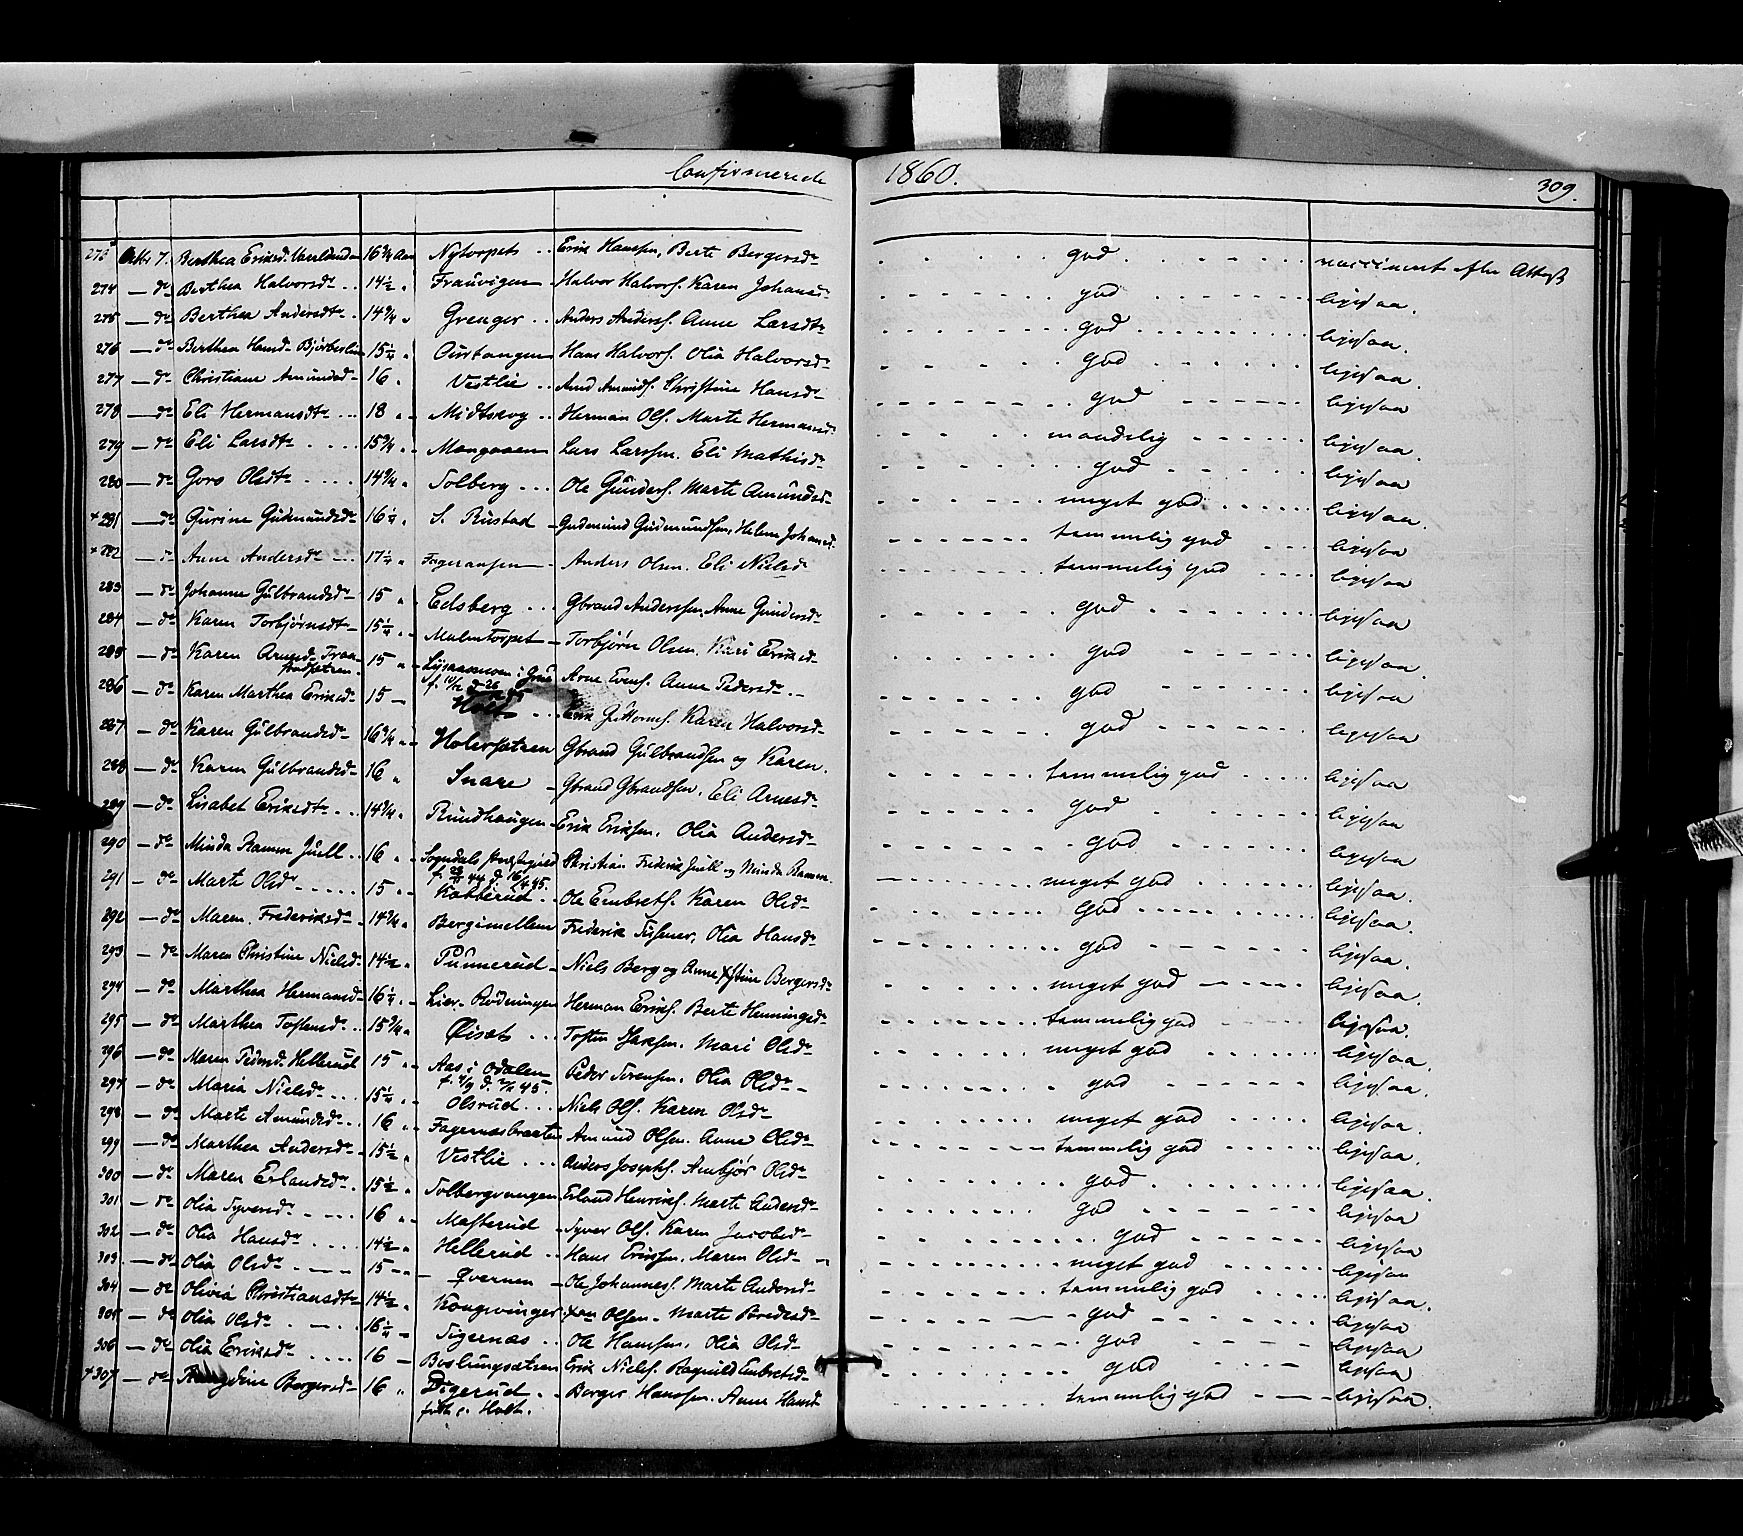 Confirmerede 1860. 309.
273 Octbr 7. Berthea Eriksd. 16 3/4 Aar Nytorpet Erik Hanssen, Berte Bergersdr god vaccineret efter Attest
274 — do Berthea Halvorsdr 14 1/2 Frauvigen Halvor Halvors. Karen Johansdr god ligesaa.
275 — do Berthea Andersdtr 14 3/4 Grenger Anders Anders. Anne Larsdtr god ligesaa.
276 — do Berthea Hansd. 15 1/4 Ourtangen Hans Halvors. Olia Halvorsdr god ligesaa.
277 — do Christiane Amundsd. 16 Vestlie Amd Amunds. Christine Hansdr god ligesaa
278 — do Eli Hermansdtr 18 Midtskog Herman Ols. Marte Hermansd. maadelig ligesaa.
279 — do Eli Larsdtr 15 3/4 Mangaaen Lars Larssen. Eli Mathisdr god ligesaa
280 — do Goro Olsdtr 14 3/4 Solberg Ole Gunders. Marte Amundsd. meget god ligesaa.
+ 281 — do Gurine Gudmundsdr 16 1/4 S. Rustad Gudmund Gudmundsen, Helene Johansd. temmelig god ligesaa
+ 282 — do Anne Andersdr 17 1/4 Anders Olsen. Eli Nielsd temmelig god ligesaa
283 — do Johanne Gulbrandsdr 15 Edsberg Gbrand Anderssen, Anne Gundersdr god ligesaa
284 — do Karen Torbjørnsdtr 15 1/4 Malmtorpet Torbjørn Olsen. Kari Eriksd. god ligesaa.
285 — do Karen Arnesd. 15 i Grue Arne Evens. Anne Pedersdr god ligesaa
286 — do Karen Marthea Eriksdr 15 Holt Erik Guttorms. Karen Halvorsdr god ligesaa
287 — do Karen Gulbrandsdr 16 3/4 Holersætren Gbrand Gulbrandsen og Karen. temmelig god ligesaa
288 — do Karen Gulbrandsdr 16 Snare Gbrand Gbrandsen. Eli Arnesdr god ligesaa
289 — do Lisabet Eriksdtr 14 3/4 Rundhaugen Erik Eriksen. Olia Andersdr god ligesaa
290 — do Minda Ramm Juell 16 Sogndals Præstegjeld Christian Frederik Juell og Minda Ramm. meget god ligesaa.
291 — do Marte Olsdr 15 Kabberud Ole Embrets. Karen Olsdr god ligesaa.
292 — do Maren Frederiksdr 14 3/4 Bergimellem Frederik Olia Hansdr god ligesaa.
293 — do Maren Christine Nielsd. 14 1/2 Punnerud Niels Berg og Anne Xstine Bergersdr meget god ligesaa.
294 — do Marthea Hermansd. 16 1/4 Lier-Rødningen Herman Eriks. Berte Henningsdr temmelig god ligesaa.
295 — do Marthea Tostensdr 15 3/4 Øiset Tosten Mari Olsdr meget god ligesaa.
296 — do Maren Pedersd. Hellerud 15 Aas i Odalen Peder Sørensen. Olia Olsdr god ligesaa.
297 — do Maria Nielsdr 15 1/4 Olsrud Niels Ols. Karen Olsdr meget god ligesaa.
298 — do Marte Amundsdr 16 Fagernæsbraaten Amund Olsen. Anne Olsdr temmelig god ligesaa.
299 — do Marthea Andersdr 15 1/2 Vestlie Anders Josephs. Ambjør Olsdr god ligesaa.
300 — do Maren Erlandsdr 15 1/2 Solbergvangen Erland Henriks. Marte Andersdr god ligesaa
301 — do Olia Syversdr 16 Masterud Syver Ols. Karen Jacobsdr god ligesaa
302 — do Olia Hansdr 14 1/2 Hellerud Hans Erikssen. Maren Olsdr meget god ligesaa
303 — do Olia Olsdr 15 Qvernen Ole Johannes. Marte Andersdr temmelig god ligesaa.
304 — do Olivia Christiansdtr 14 1/2 Kongsvinger Xtian Olsen. Marte Bredesdr god ligesaa
305 — do Olia Olsdr 16 1/4 Sigernæs Ole Hanssen. Olia Olsdr god ligesaa
306 — do Olia Eriksdr 16 Erik Niels. Ragnild Embretsdr god ligesaa
+ 307 — do Bergersdr 16 Digerud Berger Hanssen. Anne Hansd. temmelig god ligesaa.
født i Holt.